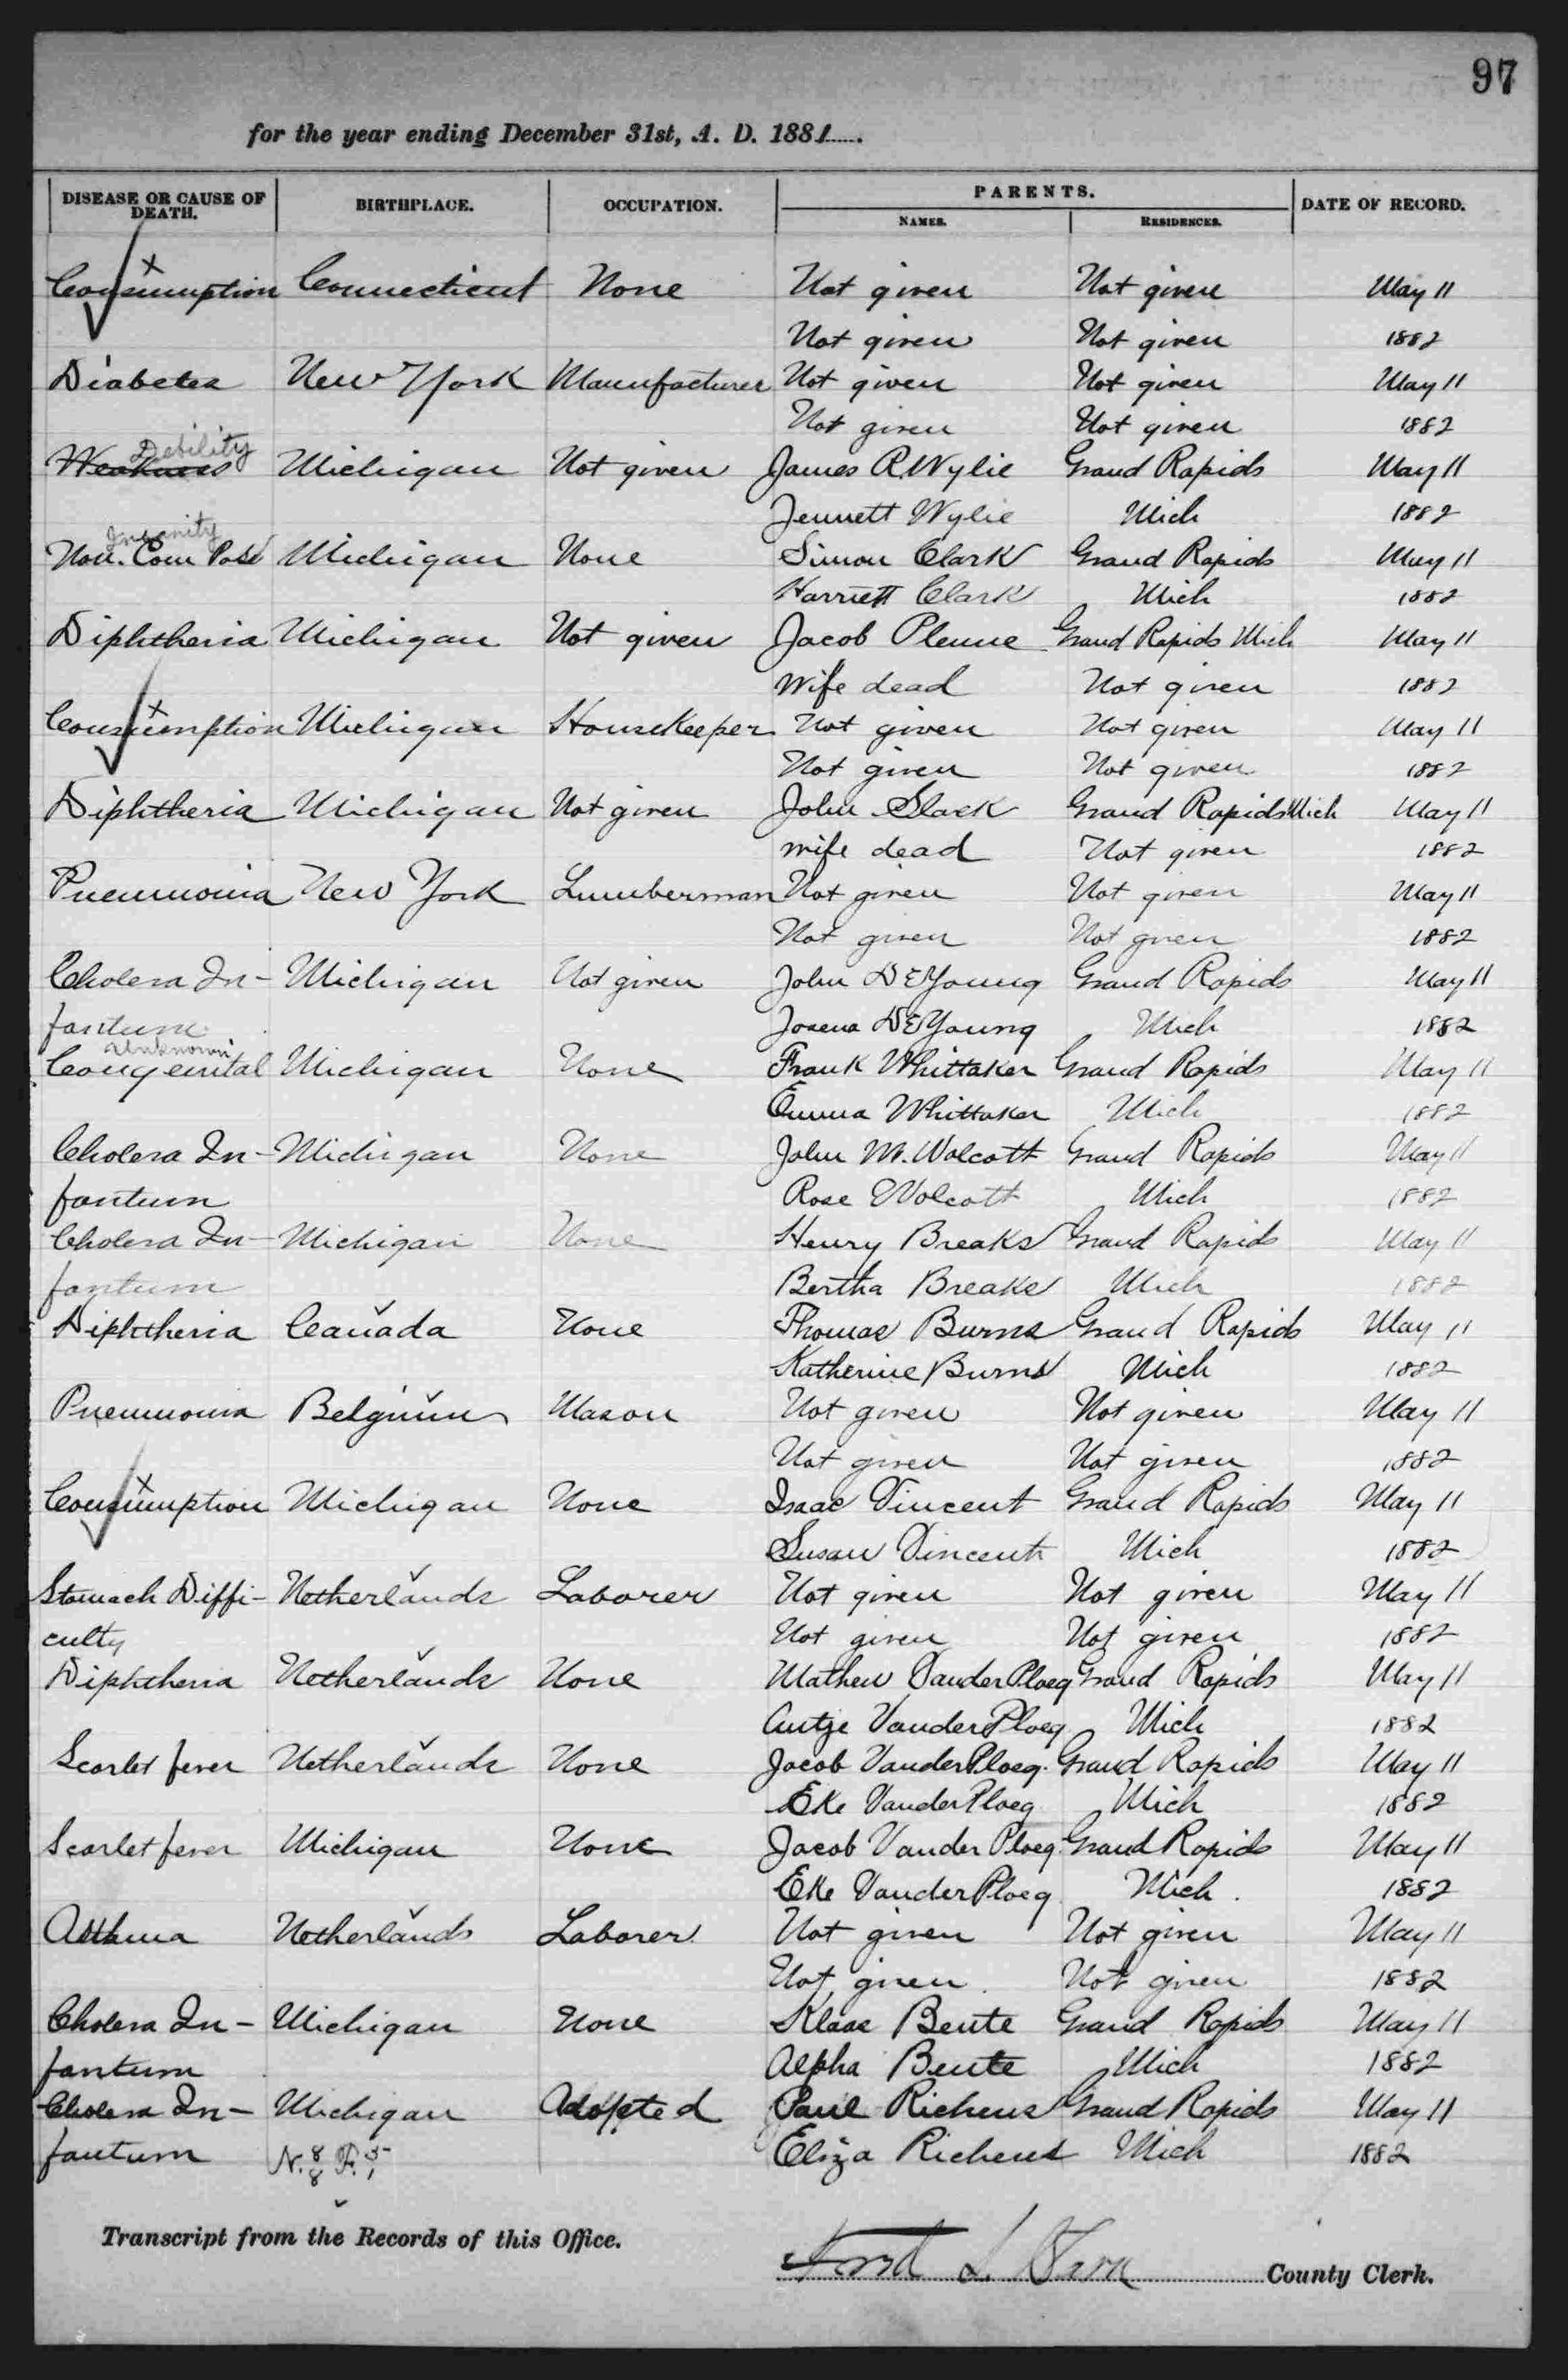 97
for the year ending December 31st, A. D. 1881.
DISEASE OR CAUSE OF DEATH. BIRTHPLACE. OCCUPATION. PARENTS. NAMES. RESIDENCES. DATE OF RECORD.
Consumption Connecticut None Not given Not given May 11
Not given Not given 1882
Diabetes New York Manufacturer Not given Not given May 11
Not given Not given 1882
Debility
Weakness Michigan Not given James R. Wylie Grand Rapids May 11
Jennett Wylie Mich 1882
Insanity
Non. Com Pose Michigan None Simon Clark Grand Rapids May 11
Harriett Clark Mich 1882
Diphtheria Michigan Not given Jacob Plenne Grand Rapids Mich May 11
Wife dead Not given 1882
Consumption Michigan Housekeeper Not given Not given May 11
Not given Not given 1882
Diphtheria Michigan Not given John Slack Grand Rapids Mich May 11
wife dead Not given 1882
Pneumonia New York Lumberman Not given Not given May 11
Not given Not given 1882
Cholera In- Michigan Not given John DEYoung Grand Rapids May 11
fantum Josena DEYoung Mich 1882
Unknown
Congenital Michigan None Frank Whittaker Grand Rapids May 11
Emma Whittaker Mich 1882
Cholera In- Michigan None John M. Wolcott Grand Rapids May 11
fantum Rose Wolcott Mich 1882
Cholera In- Michigan None Henry Breaks Grand Rapids May 11
fantum Bertha Breaks Mich 1882
Diphtheria Canada None Thomas Burns Grand Rapids May 11
Katherine Burns Mich 1882
Pneumonia Belgium Mason Not given Not given May 11
Not given Not given 1882
Consumption Michigan None Isaac Vincent Grand Rapids May 11
Susan Vincent Mich 1882
Stomach Diffi- Netherlands Laborer Not given Not given May 11
culty Not given Not given 1882
Diphtheria Netherlands None Mathew VanderPloeg Grand Rapids May 11
Antje VanderPloeg Mich 1882
Scarlet fever Netherlands None Jacob VanderPloeg. Grand Rapids May 11
Eke VanderPloeg Mich 1882
Scarlet fever Michigan None Jacob Vander Ploeg. Grand Rapids May 11
Eke VanderPloeg Mich. 1882
Asthma Netherlands Laborer Not given Not given May 11
Not given. Not given 1882
Cholera In- Michigan None Klaas Bente Grand Rapids May 11
fantum Alpha Bente Mich 1882
Cholera In- Michigan Adopted Paul Richens Grand Rapids May 11
fantum N. 8 F. 5 Eliza Richens Mich 1882
8 1
Transcript from the Records of this Office.
County Clerk.